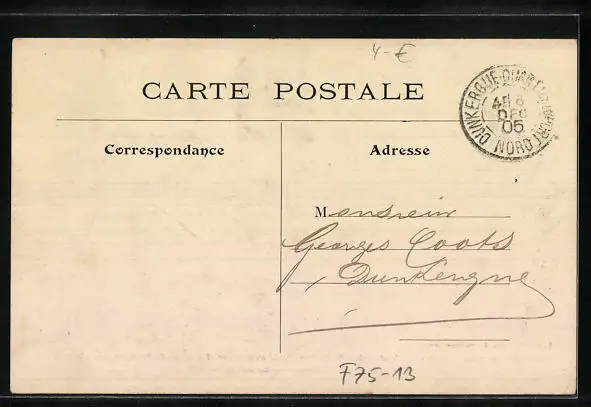 4-€
CARTE POSTALE
DUNKERQUE NORD
8
DEC
05
Correspondance
Adresse
Monsieur
Georges Coots
Dunkerque
F75-13